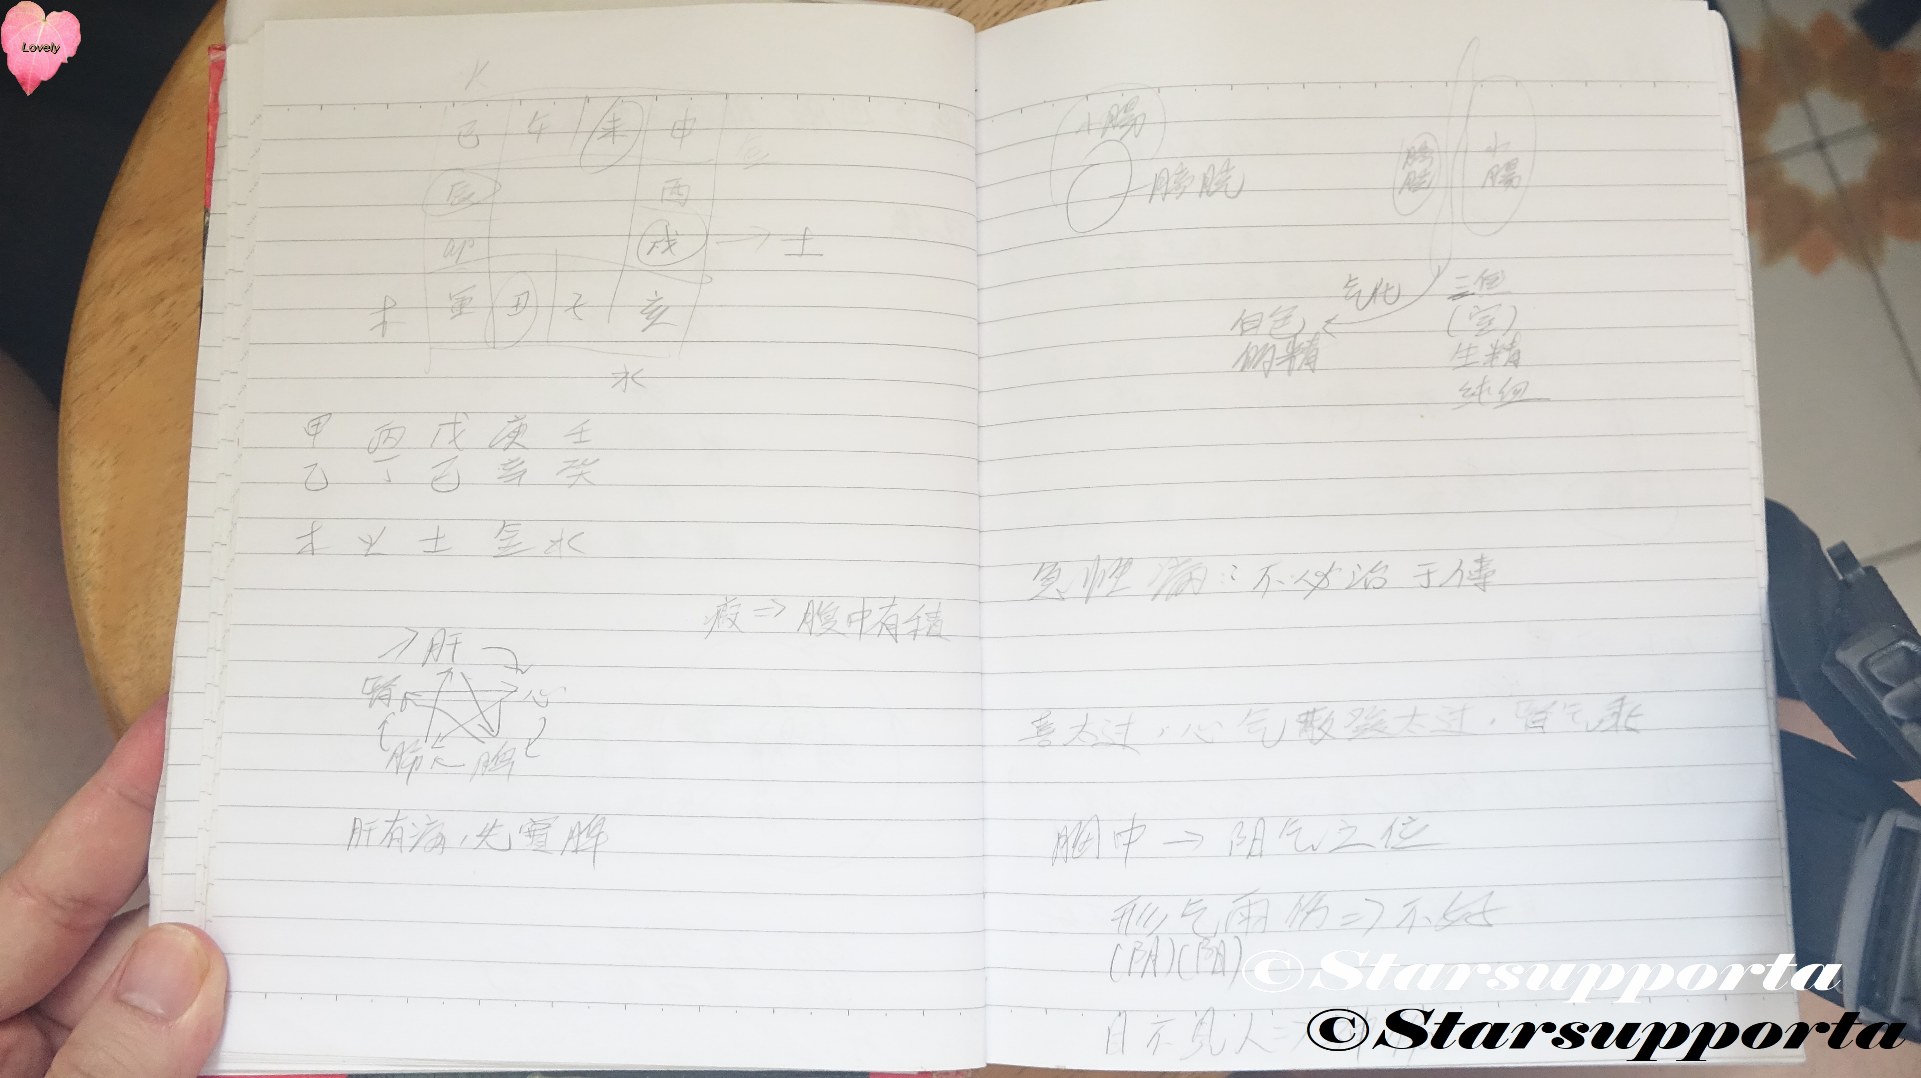 Lovely
巳 午 未 申
辰 丙
卯 戌 → 土
木 寅 丑 子 亥
水
甲 丙 戊 庚 壬
乙 丁 己 辛 癸
木 火 土 金 水
⇒ 腹中有積
肝
腎 心
肺 脾
肝有病,先實脾
小腸
膀胱
膀胱
小腸
气化
白色
生精
急性病:不必治于
喜太过,心气散 太过,腎气乘
胸中 → 阳气之位
形气兩伤 ⇒ 不好
(阴)(阳)
目不見人
©Starsupporta
©Starsupporta